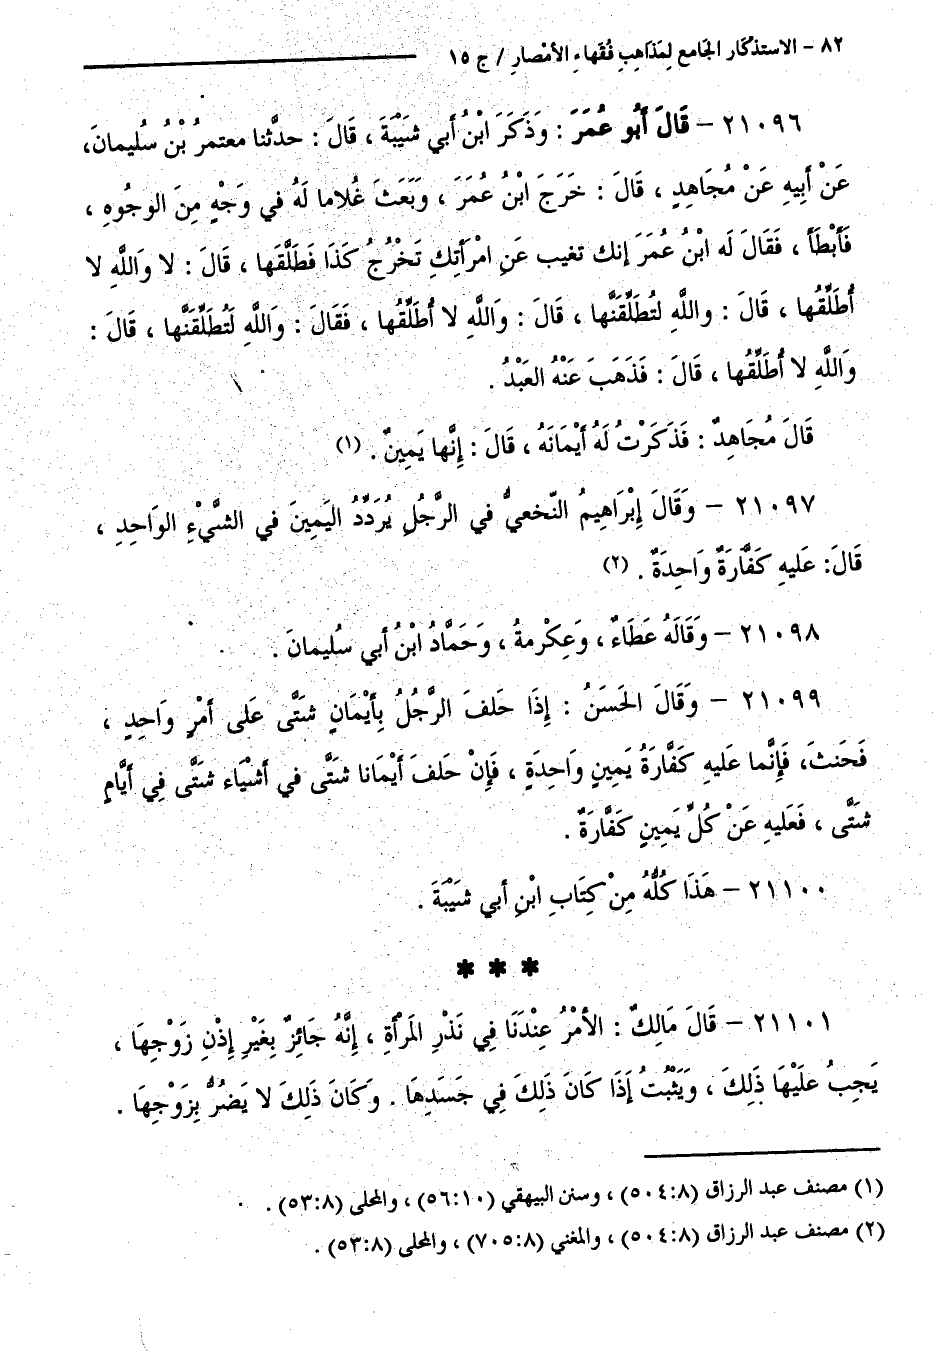 ٨٢ – الاستذكار الجَامع لِمَذَاهِبِ فُقَهاءِ الأمْصارِ / ج ١٥
٢١٠٩٦ – قَالَ أَبُو عُمَرَ : وَذَكَرَ ابْنُ أبي شَيْبَةَ ، قَالَ : حدَّثنا معتمرُ بْنُ سُليمانَ،
عَنْ أبِيهِ عَنْ مُجَاهِدٍ ، قَالَ : خَرَجَ ابْنُ عُمَرَ ، وَبَعَثَ غُلاما لَهُ في وَجْهٍ مِنَ الوجُوهِ ،
فَأَبْطَأَ ، فَقَالَ لَه ابْنُ عُمَرَ إنك تغيب عَنِ امْرَأَتِكِ تَخْرُجُ كَذَا فَطَلَّقَها ، قَالَ : لا وَاللَّهِ لا
أُطَلِّقُها ، قَالَ : واللَّهِ لتُطَلِّقَنَّها ، قَالَ : وَاللَّهِ لا أُطَلِّقُها ، فَقَالَ : وَاللَّهِ لَتُطَلِّقَنَّها ، قَالَ :
وَاللَّهِ لا أُطَلِّقُها ، قَالَ : فَذَهَبَ عَنْهُ العَبْدُ .
قَالَ مُجَاهِدٌ : فَذَكَرْتُ لَهُ أيْمَانَهُ ، قَالَ : إنَّها يَمِينٌ . (١)
٢١٠٩٧ – وَقَالَ إِبْرَاهِيمُ النّخعيُّ في الرَّجُلِ يُرَدِّدُ اليَمِينَ في الشَّيْءِ الوَاحِدِ ،
قَالَ: عَليهِ كَفَّارَةٌ وَاحِدَةٌ . (٢)
٢١٠٩٨ – وَقَالَهُ عَطَاءٌ ، وَعِكْرِمةُ ، وَحَمَّادُ ابْنُ أبي سُليمانَ .
٢١٠٩٩ – وَقَالَ الحَسَنُ : إِذَا حَلفَ الرَّجُلُ بِأَيْمَانٍ شَتَّى عَلى أَمْرٍ وَاحِدٍ ،
فَحَنثَ، فَإِنَّما عَليهِ كَفَّارَةُ يَمِينٍ وَاحِدَةٍ ، فَإِنْ حَلفَ أَيْمَانا شَتَّى في أشْيَاء شَتَّى فِي أيَّامٍ
شَتَّى ، فَعَليهِ عَنْ كُلِّ يَمِينٍ كَفَّارَةٌ .
٢١١٠٠ – هَذَا كُلُّهُ مِنْ كِتَابِ ابْنِ أبي شَيْبَةَ .
✱ ✱ ✱
٢١١٠١ – قَالَ مَالِكٌ : الأَمْرُ عِنْدَنَا فِي نَذْرِ المَرْأَةِ ، إِنَّهُ جَائِزٌ بِغَيْرِ إِذْنِ زَوْجِهَا ،
يَجِبُ عَلَيْهَا ذَلِكَ ، وَيَثْبُتُ إَذَا كَانَ ذَلِكَ فِي جَسَدِهَا . وَكَانَ ذَلِكَ لا يَضُرُّ بِزَوْجِهَا .
(١) مصنف عبد الرزاق (٥٠٤:٨) ، وسنن البيهقي (٥٦:١٠) ، والمحلى (٥٣:٨) .
(٢) مصنف عبد الرزاق (٥٠٤:٨) ، والمغني (٧٠٥:٨) ، والمحلى (٥٣:٨) .